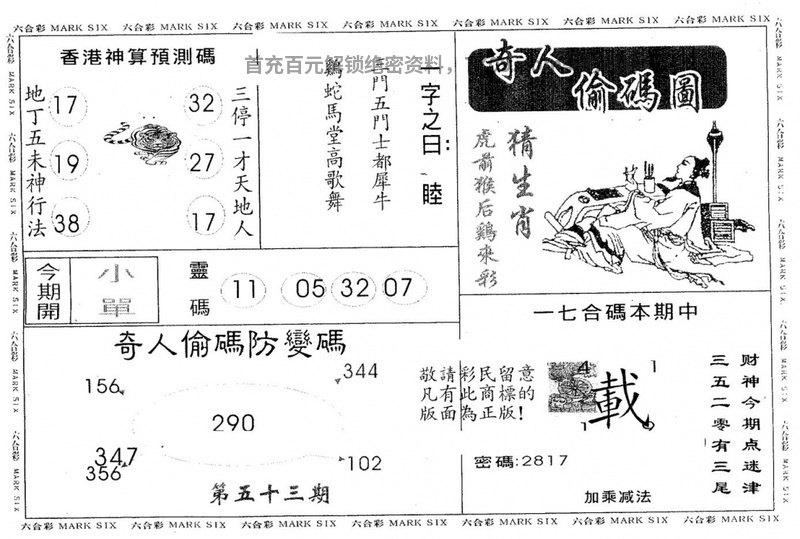 六合彩 MARK SIX 六合彩 MARK SIX 六合彩 MARK SIX 六合彩 MARK SIX 六合彩 MARK SIX 六合彩 MARK SIX 六合彩 MARK SIX
香港神算預測碼
地丁五未神行法
17
19
38
32
27
17
三停一才天地人
首充百元解锁绝密资料,
一字之曰:睦
三門五門士都犀牛
鷄蛇馬堂高歌舞
奇人
偷碼圖
猜生肖
虎前猴后鷄來彩
今期開
小單
靈碼
11 05 32 07
一七合碼本期中
奇人偷碼防變碼
156
344
290
347
356
102
第五十三期
敬請彩民留意
凡有此商標的
版面為正版!
4
1
載
1
9
密碼:2817
加乘减法
财神今期点迷津
三五二零有三尾
六合彩 MARK SIX 六合彩 MARK SIX 六合彩 MARK SIX 六合彩 MARK SIX 六合彩 MARK SIX 六合彩 MARK SIX 六合彩 MARK SIX